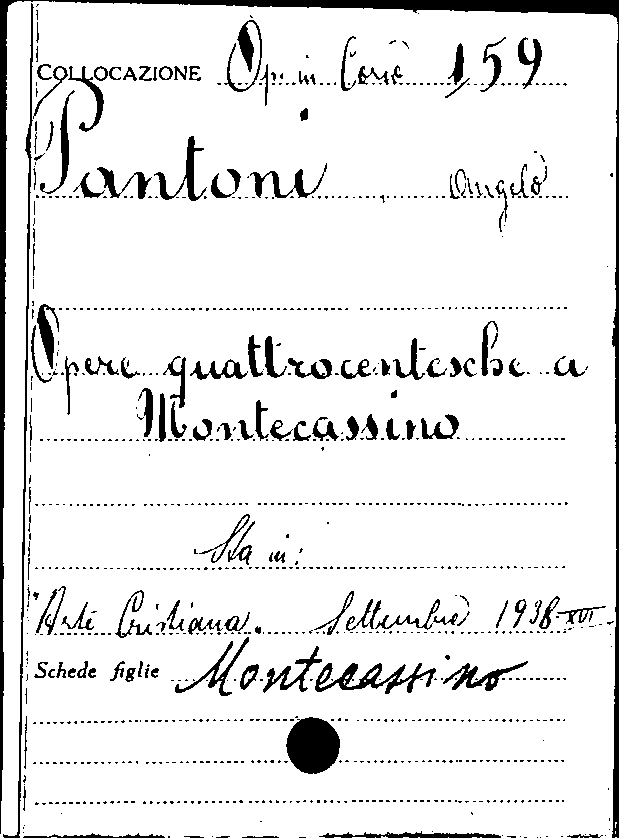 COLLOCAZIONE Op. in Corso 159
Pantoni, Angelo
Opere quattrocentesche a
Montecassino
Sta in:
"Arte Cristiana. Settembre 1938-XVI
Schede figlie Montecassino